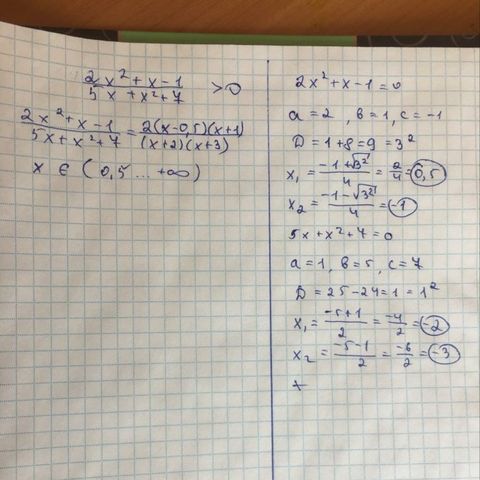 2x² + x - 1 / 5x + x² + 7 > 0
2x² + x - 1 / 5x + x² + 7 = 2(x - 0,5)(x + 1) / (x + 2)(x + 3)
x ∈ (0,5 ... +∞)
2x² + x - 1 = 0
a = 2, b = 1, c = -1
D = 1 + 8 = 9 = 3²
x₁ = -1 + √3² / 4 = 2/4 = 0,5
x₂ = -1 - √3² / 4 = -1
5x + x² + 7 = 0
a = 1, b = 5, c = 7
D = 25 - 24 = 1 = 1²
x₁ = -5 + 1 / 2 = -4/2 = -2
x₂ = -5 - 1 / 2 = -6/2 = -3
x